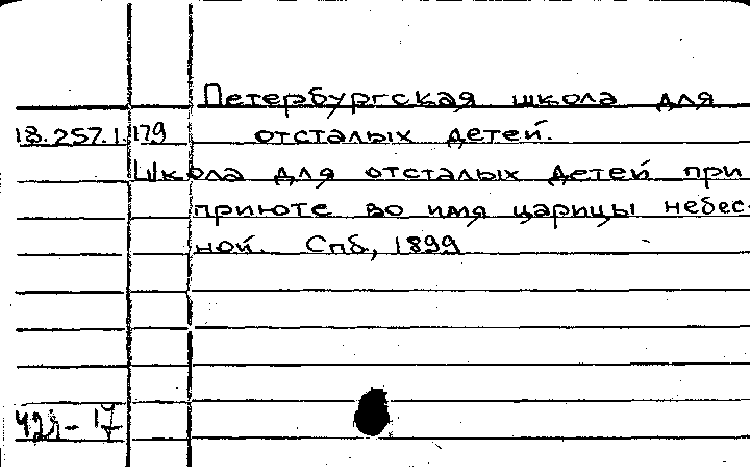 Петербургская школа для
18.257.1.179 отсталых детей.
Школа для отсталых детей при
приюте во имя царицы небес-
ной. Спб, 1899